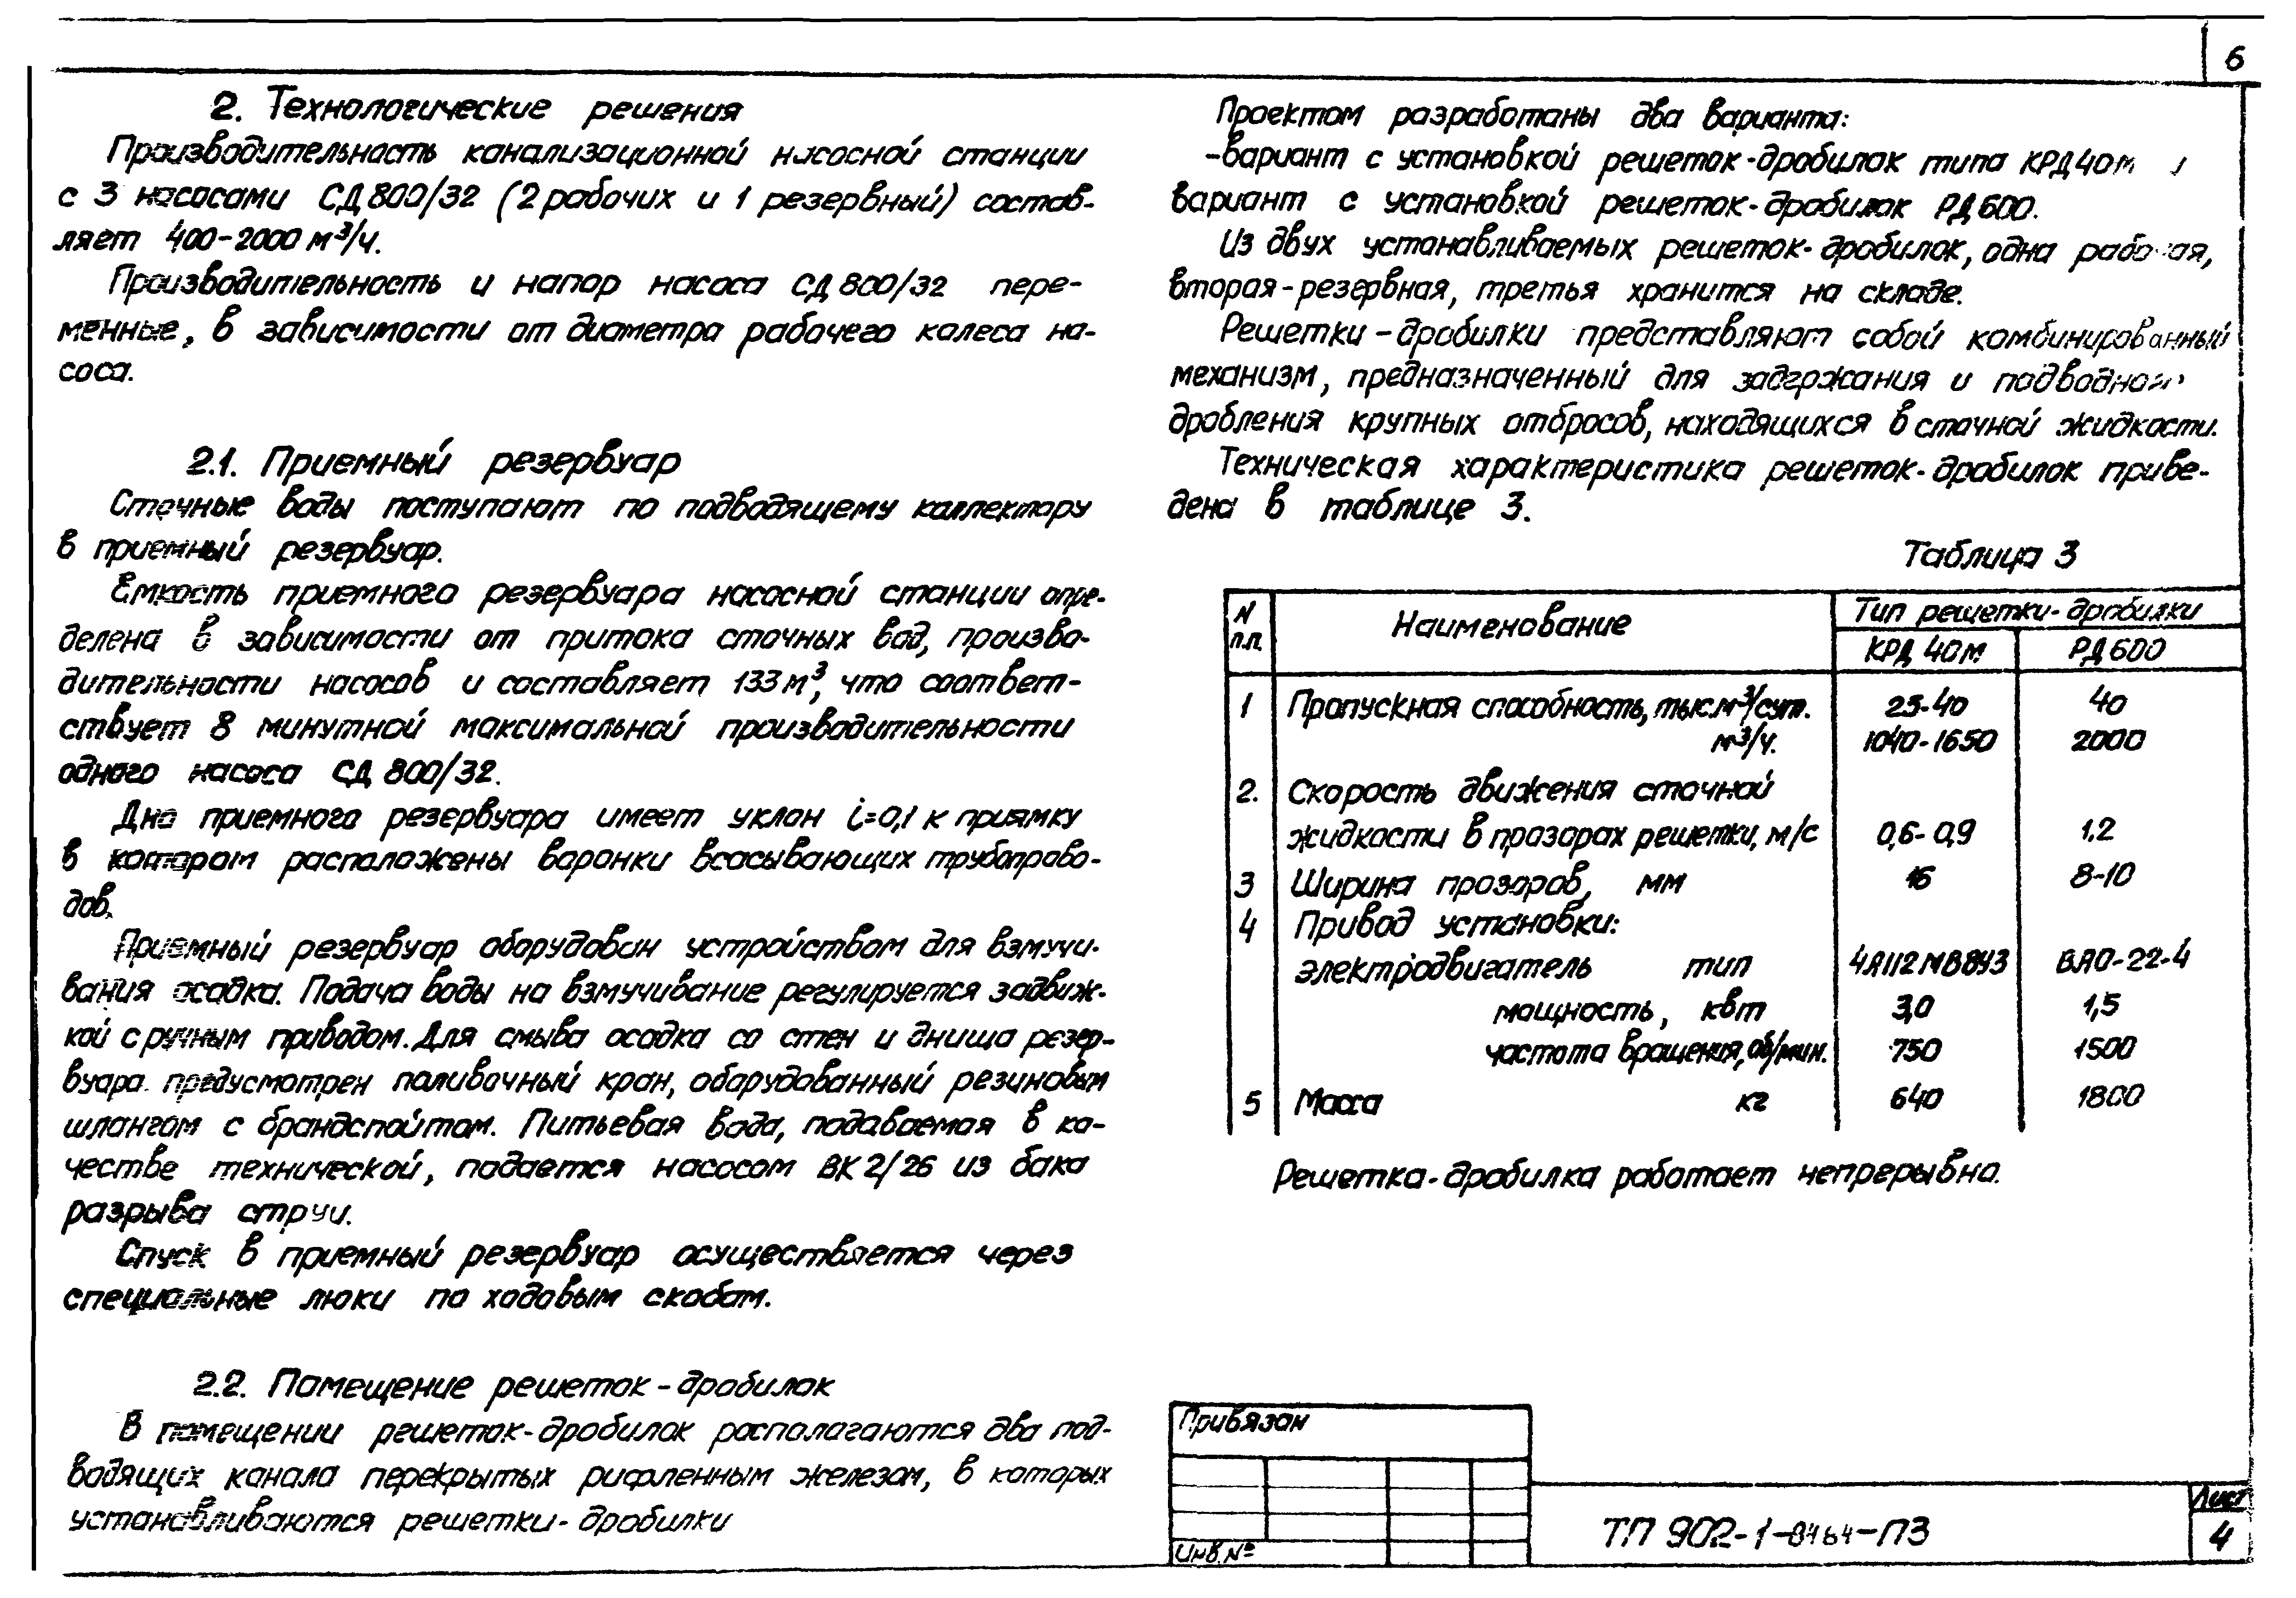 6
2. Технологические решения
Производительность канализационной насосной станции
с 3 насосами СД 800/32 (2 рабочих и 1 резервный) состав-
ляет 400-2000 м³/ч.
Производительность и напор насоса СД 800/32 пере-
менные, в зависимости от диаметра рабочего колеса на-
соса.
2.1. Приемный резервуар
Сточные воды поступают по подводящему коллектору
в приемный резервуар.
Емкость приемного резервуара насосной станции опре-
делена в зависимости от притока сточных вод, произво-
дительности насосов и составляет 133 м³, что соответ-
ствует 8 минутной максимальной производительности
одного насоса СД 800/32.
Дно приемного резервуара имеет уклон i=0,1 к приямку
в котором расположены воронки всасывающих трубопрово-
дов.
Приемный резервуар оборудован устройством для взмучи-
вания осадка. Подача воды на взмучивание регулируется задвиж-
кой с ручным приводом. Для смыва осадка со стен и днища резер-
вуара предусмотрен поливочный кран, оборудованный резиновым
шлангом с брандспойтом. Питьевая вода, подаваемая в ка-
честве технической, подается насосом ВК 2/26 из бака
разрыва струи.
Спуск в приемный резервуар осуществляется через
специальные люки по ходовым скобам.
2.2. Помещение решеток-дробилок
В помещении решеток-дробилок располагаются два под-
водящих канала перекрытых рифленным железом, в которых
устанавливаются решетки-дробилки
Проектом разработаны два варианта:
-вариант с установкой решеток-дробилок типа КРД 40м
вариант с установкой решеток-дробилок РД 600.
Из двух устанавливаемых решеток-дробилок, одна рабочая,
вторая-резервная, третья хранится на складе.
Решетки-дробилки представляют собой комбинированный
механизм, предназначенный для задержания и подводного
дробления крупных отбросов, находящихся в сточной жидкости.
Техническая характеристика решеток-дробилок приве-
дена в таблице 3.
Таблица 3
N п.п. Наименование Тип решетки-дробилки
КРД 40м РД 600
1 Пропускная способность, тыс.м³/сут. 25-40 40
м³/ч. 1040-1650 2000
2. Скорость движения сточной
жидкости в прозорах решетки, м/с 0,6-0,9 1,2
3 Ширина прозоров, мм 16 8-10
4 Привод установки:
электродвигатель тип 4А112МВ8У3 ВАО-22-4
мощность, квт 3,0 1,5
частота вращения, об/мин. 750 1500
5 Масса кг 640 1800
Решетка-дробилка работает непрерывно.
Привязан
Инв.№
ТП 902-1- -ПЗ
Лист
4